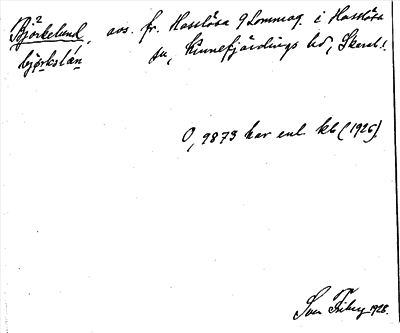 Björkelund, avs. fr. Hasslösa 9 Lommag. i Hasslösa
bjǫ̈rkslán sn, Kinnefjärdings hd, Skarab.l.
0,9873 har enl. kb (1926).
Sven Friberg 1928.